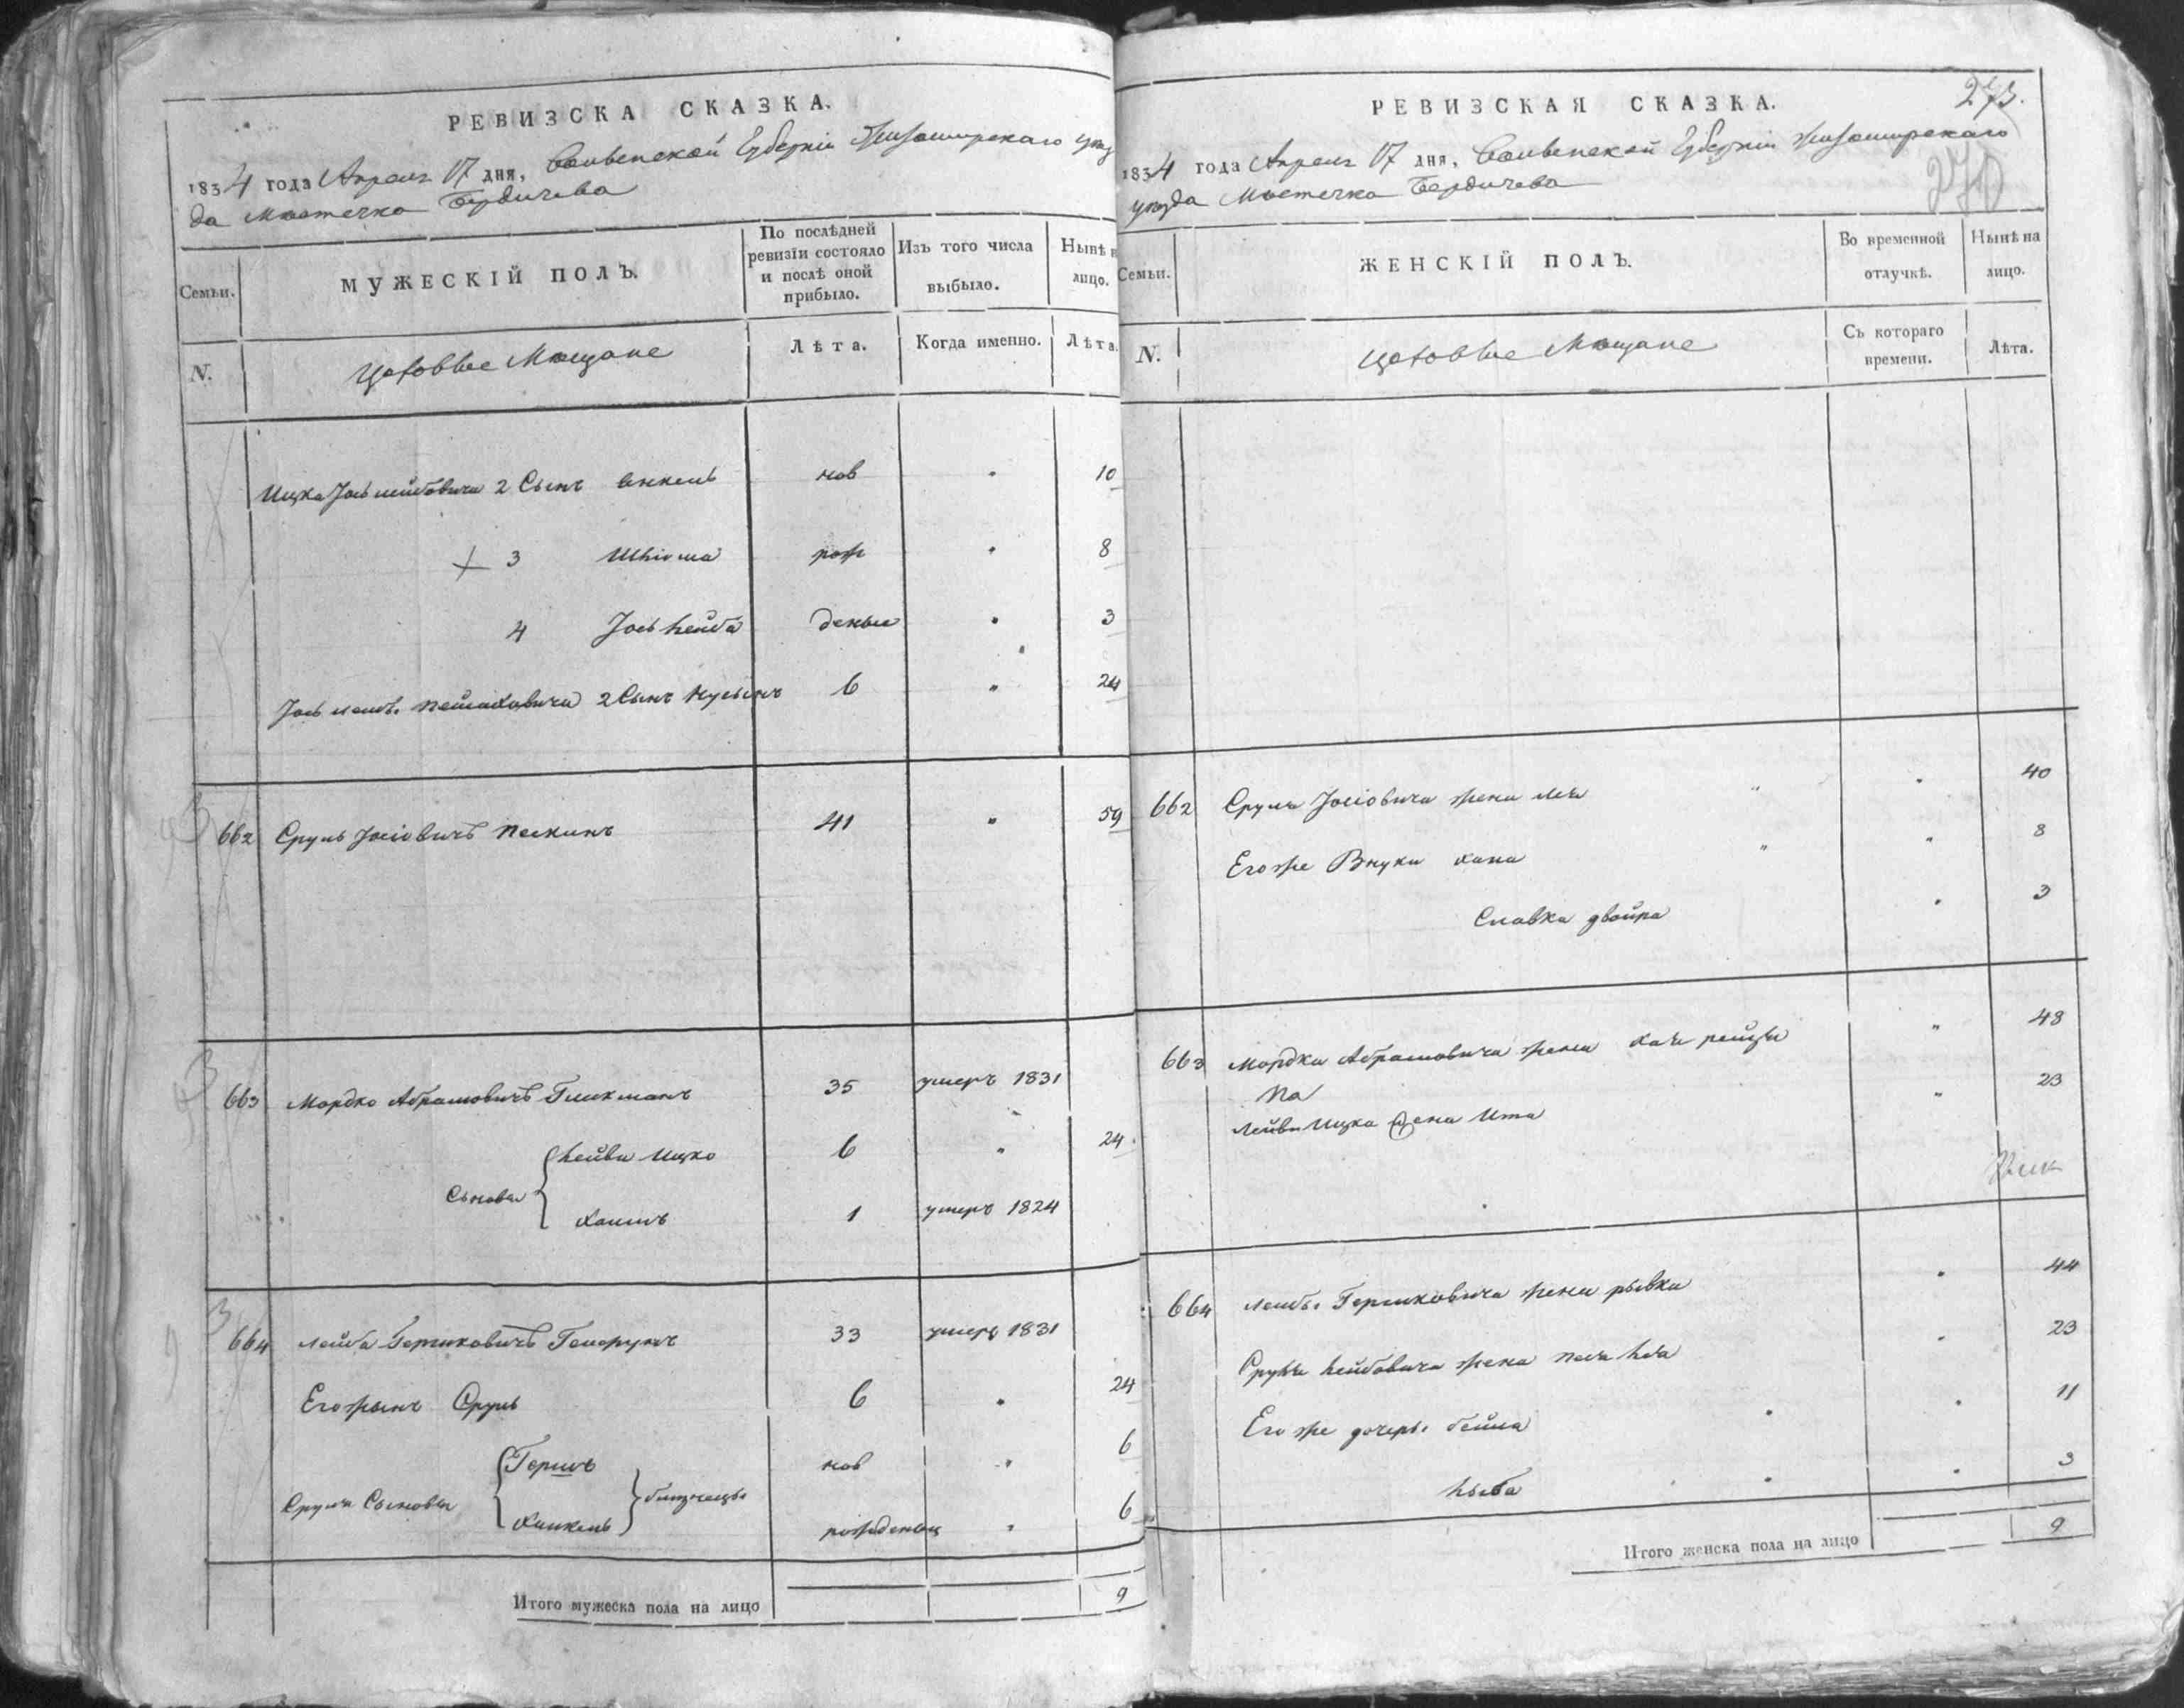 РЕВИЗСКА СКАЗКА.
1834 года Апреля 17 дня, Волынской Губерніи Житомирскаго уѣз
да Мѣстечка Бердичева
Семьи.
МУЖЕСКІЙ ПОЛЪ.
По послѣдней ревизіи состояло и послѣ оной прибыло.
Изъ того числа выбыло.
Нынѣ н лицо.
N.
Цеховые Мѣщане
Лѣта.
Когда именно.
Лѣта.
Ицка Іосьлейбовича 2 Сынъ Янкель нов " 10
3 Шліома рож " 8
4 Іось Лейба деные " 3
Іось Лейбы 2 Сынъ Нусынъ 6 " 24
662 Сруль Іосіовичъ Пескинъ 41 " 59
663 Мордко Абрамовичъ Гликманъ 35 умеръ 1831
Сыновья
Лейви Ицко 6 " 24
Хаимъ 1 умеръ 1824
664 Лейба Гершковичъ 33 умеръ 1831
Его Сынъ Сруль 6 " 24
Сруля Сыновья
Гершъ нов " 6
близнецы
Хаикель рожденыи " 6
Итого мужеска пола на лицо 9
РЕВИЗСКАЯ СКАЗКА.
273.
270
1834 года Апреля 17 дня, Волынской Губерніи Житомирскаго
уѣзда Мѣстечка Бердичева
Семьи.
ЖЕНСКІЙ ПОЛЪ.
Во временной отлучкѣ.
Нынѣ на лицо.
N.
Цеховые Мѣщане
Съ котораго времени.
Лѣта.
662 Сруля Іосіовича жена Лея " 40
Егоже Внуки Хана " 8
Славка двойра " 3
663 Мордка Абрамовича жена Хая рейзя " 48
Лейви Ицка жена Ита " 23
664 Лейбы Гершковича жена рывка " 44
Сруля Лейбовича жена Песя Лея " 23
Его же дочеръ бейла " 11
Лыба " 3
Итого женска пола на лицо 9